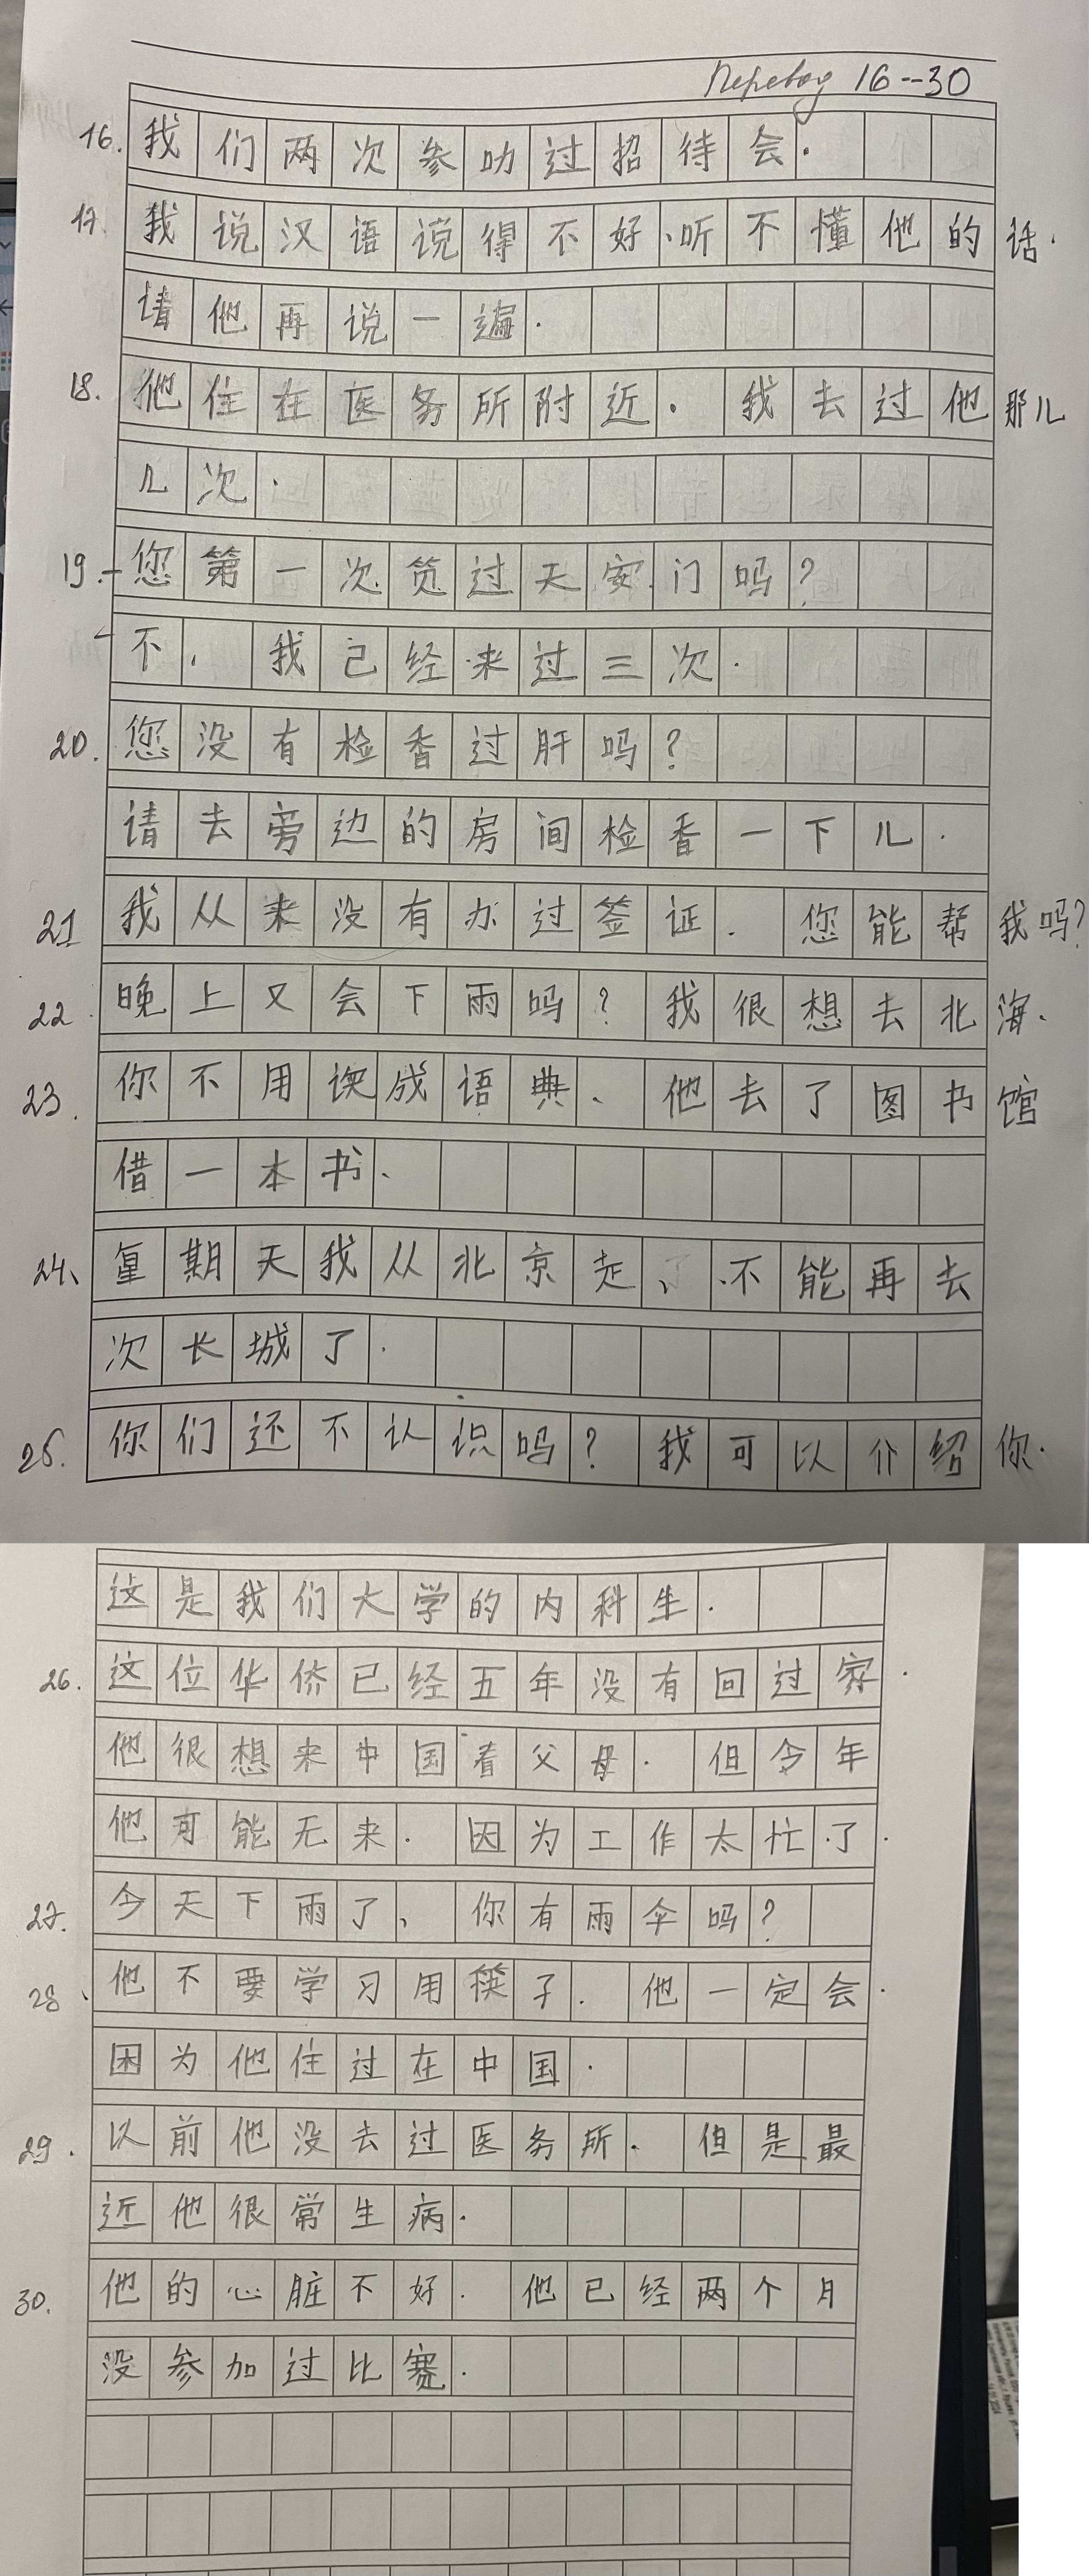 Перевод 16--30
16. 我们两次参加过招待会.
17. 我说汉语说得不好、听不懂他的话.
请他再说一遍.
18. 他住在医务所附近. 我去过他那儿
几次.
19. – 您第一次 过天安门吗?
– 不, 我己经来过三次.
20. 您没有检香过肝吗?
请去旁边的房间检香一下儿.
21 我从来没有办过签证. 您能帮我吗?
22. 晚上又会下雨吗? 我很想去北海.
23. 你不用 成语典、他去了图书馆
借一本书.
24、 星期天我从北京走、不能再去
次长城了.
25. 你们还不认识吗? 我可以介绍你.
这是我们大学的内科生.
26. 这位华侨已经五年没有回过家.
他很想来中国看父母. 但今年
他可能无来. 因为工作太忙了.
27. 今天下雨了、你有雨伞吗?
28. 他不要学习用筷子. 他一定会.
因为他住过在中国.
29. 以前他没去过医务所. 但是最
近他很常生病.
30. 他的心脏不好. 他已经两个月
没参加过比赛.